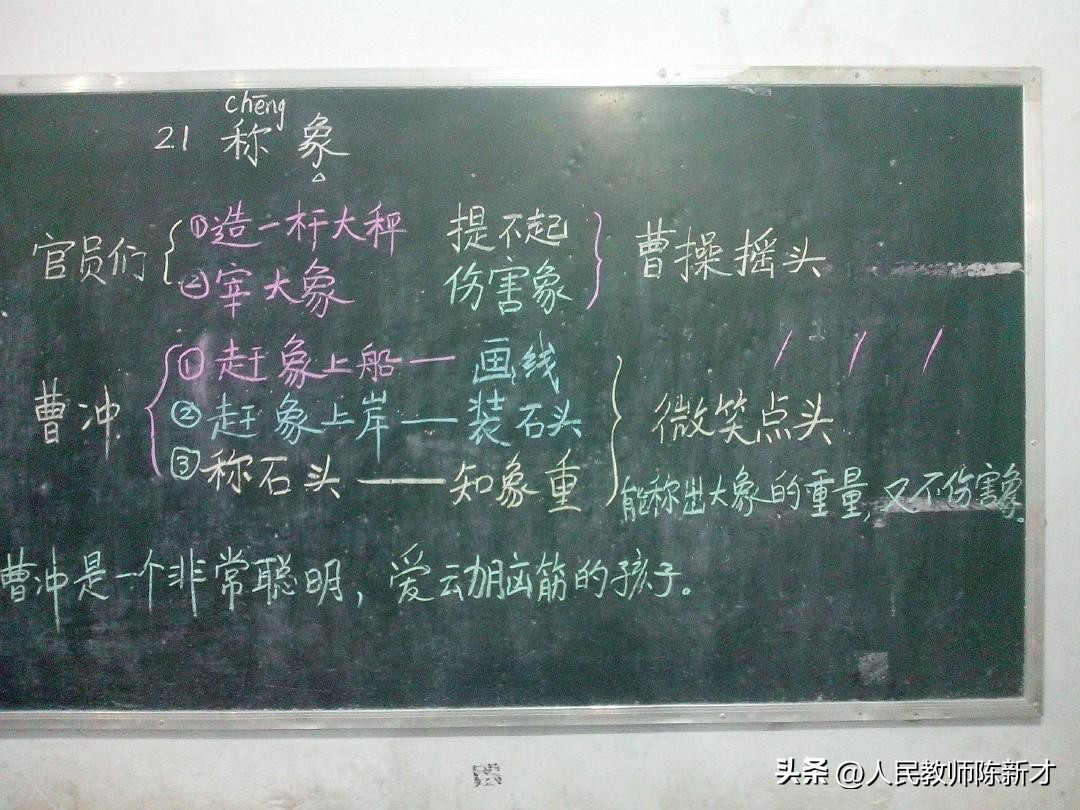 chēng
21 称象
官员们 ①造一杆大秤 提不起 曹操摇头
②宰大象 伤害象
曹冲 ①赶象上船—画线 微笑点头
②赶象上岸—装石头
③称石头——知象重
能称出大象的重量,又不伤害象。
曹冲是一个非常聪明,爱动脑筋的孩子。
头条 @人民教师陈新才